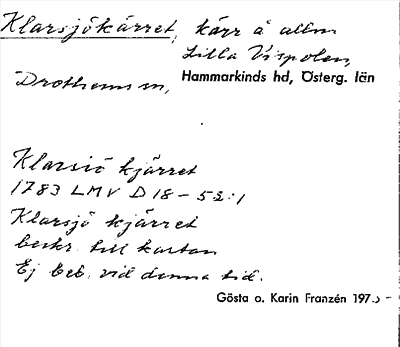 Klarsjökärret, kärr å allm
Lilla Vispolen,
Drothems sn, Hammarkinds hd, Österg. län
Klarsiö kjärret
1783 LMV D 18 – 52:1
Klarsjö kjärret
beskr. till kartan
Ej beb. vid denna tid.
Gösta o. Karin Franzén 197